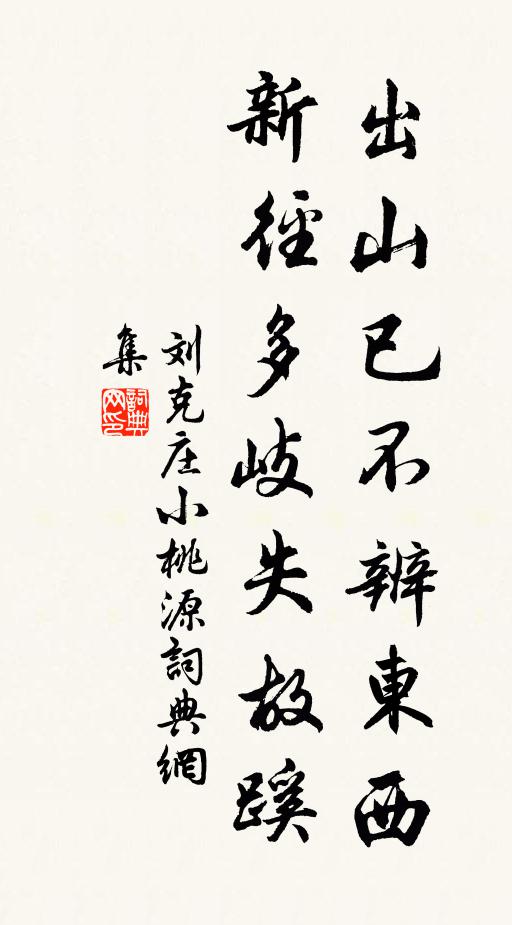 出山已不辨東西
新徑多岐失故蹊
刘克庄小桃源詞典網
集
詞典
网印